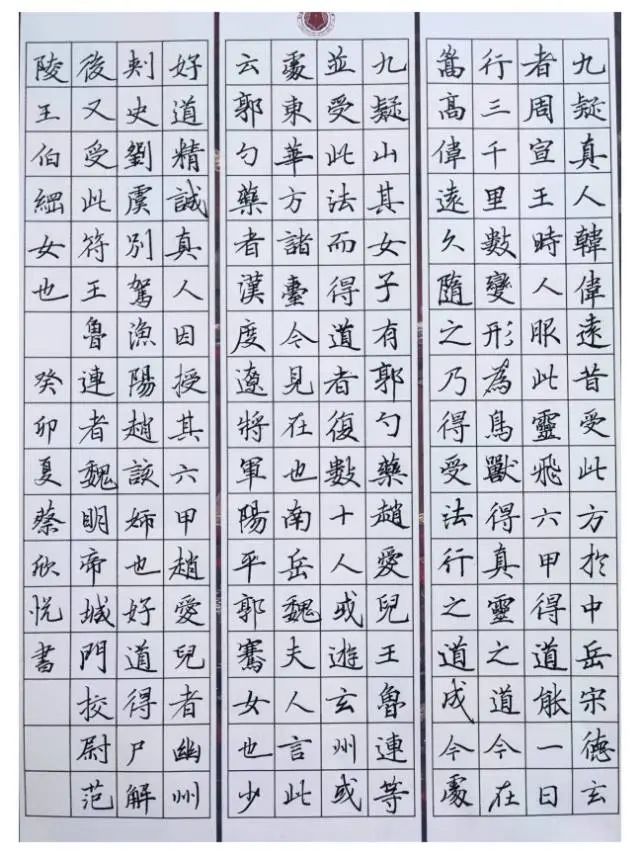 九疑真人韓偉遠昔受此方於中岳宋德玄
者周宣王時人服此靈飛六甲得道能一日
行三千里數變形為鳥獸得真靈之道今在
嵩高偉遠久隨之乃得受法行之道成今處
九疑山其女子有郭勺藥趙愛兒王魯連等
並受此法而得道者復數十人或遊玄州或
處東華方諸臺今見在也南岳魏夫人言此
云郭勺藥者漢度遼將軍陽平郭騫女也少
好道精誠真人因授其六甲趙愛兒者幽州
刾史劉虞別駕漁陽趙該姉也好道得尸解
後又受此符王魯連者魏明帝城門校尉范
陵王伯綱女也 癸卯夏蔡欣悅書